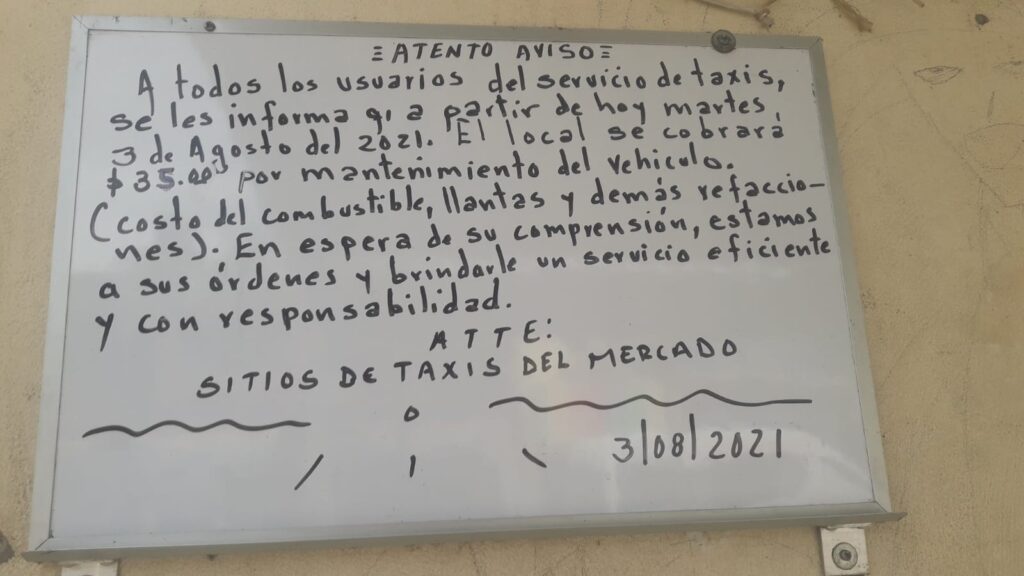 ≡ATENTO AVISO≡
A todos los usuarios del servicio de taxis,
se les informa q; a partir de hoy martes,
3 de Agosto del 2021. El local se cobrará
$35.00 por mantenimiento del vehiculo.
(costo del combustible, llantas y demás refaccio-
nes). En espera de su comprensión, estamos
a sus órdenes y brindarle un servicio eficiente
y con responsabilidad.
ATTE:
SITIOS DE TAXIS DEL MERCADO
3|08|2021